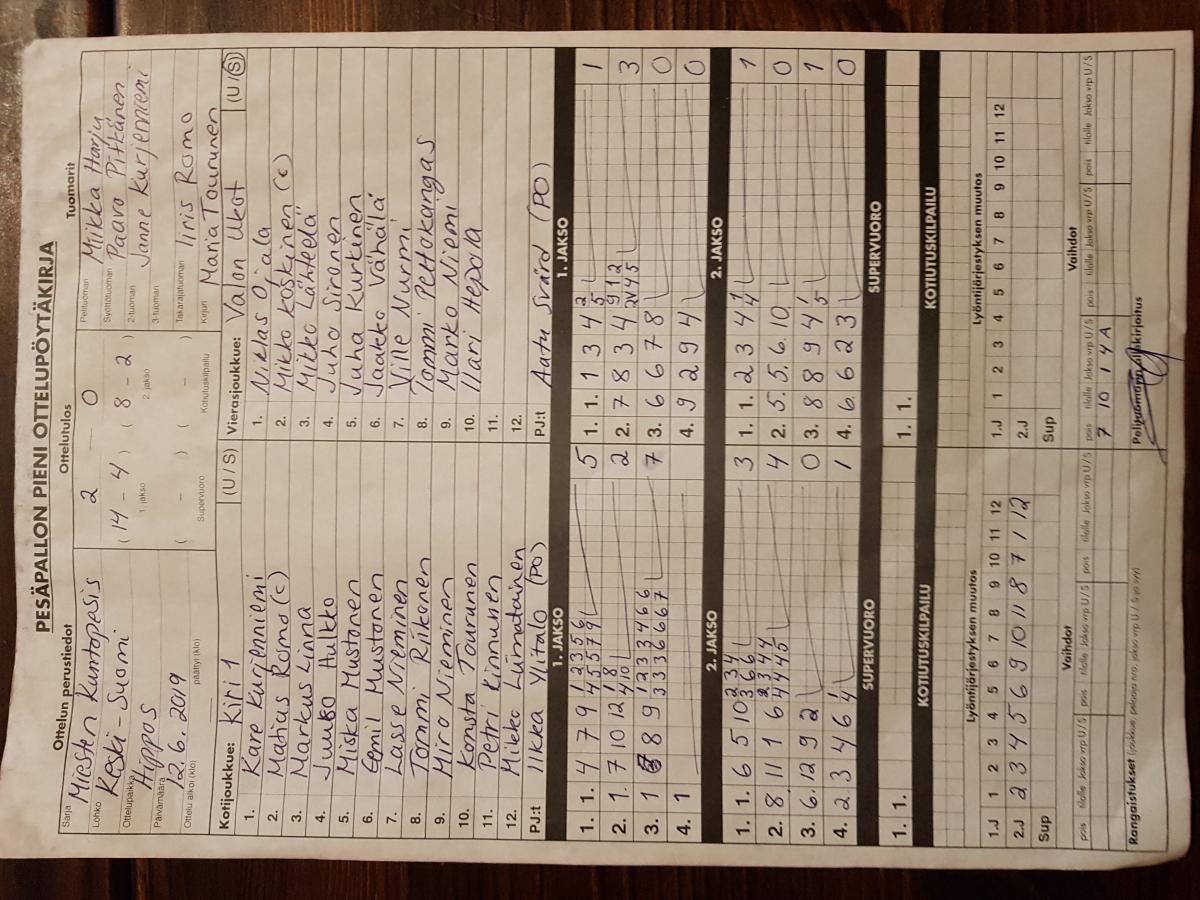 PESÄPALLON PIENI OTTELUPÖYTÄKIRJA
Ottelun perustiedot
Ottelutulos
Tuomarit
Sarja Miesten Kuntopesis
Lohko Keski-Suomi
Ottelupaikka Hippos
Päivämäärä 12.6.2019
Ottelu alkoi (klo)
päättyi (klo)
2 — 0
( 14 - 4 ) ( 8 - 2 )
1. jakso 2. jakso
( - ) ( - )
Supervuoro Kotiutuskilpailu
Pelituomari Miikka Harju
Syöttötuomari Paavo Pitkänen
2-tuomari Janne Kurjenniemi
3-tuomari
Takarajatuomari Iiris Romo
Kirjuri Maria Tourunen
Kotijoukkue: Kiri 1 (U / S)
1. Kare Kurjenniemi
2. Matias Romo (c)
3. Markus Linna
4. Juuso Hulkko
5. Miska Mustonen
6. Eemil Mustonen
7. Lasse Nieminen
8. Tommi Riikonen
9. Miro Nieminen
10. Konsta Tourunen
11. Petri Kinnunen
12. Mikko Liimatainen
PJ:t Ilkka Ylitalo (PO)
Vierasjoukkue: Valon Ukot (U / S)
1. Niklas Ojala
2. Mikko Koskinen (c)
3. Mikko Lähteelä
4. Juho Sironen
5. Juha Kurkinen
6. Jaakko Vähälä
7. Ville Nurmi
8. Tommi Peltokangas
9. Marko Niemi
10. Ilari Hepola
11.
12.
PJ:t Aatu Svärd (PO)
1. JAKSO
1. 1. 4 7 9 1 2 3 5 6 5
4 5 5 7 9
2. 1. 7 10 12 1 8 2
4 10
3. 1 8 9 1 2 3 3 4 6 6 7
3 3 3 6 6 6 7
4. 1
1. JAKSO
1. 1. 1 3 4 2 1
5
2. 7 8 3 4 9 1 2 3
2 4 5
3. 6 6 7 8 0
4. 9 2 9 4 0
2. JAKSO
1. 1. 6 5 10 2 3 4 3
3 6 6
2. 8. 11 1 6 2 3 4 4 4
4 4 4 5
3. 6. 12 9 2 0
4. 2 3 4 6 1 1
4
2. JAKSO
1. 1. 2 3 4 1 1
4
2. 5. 5. 6. 10 0
3. 8 8 9 4 1 1
5
4. 6. 6 2 3 0
SUPERVUORO
1. 1.
SUPERVUORO
1. 1.
KOTIUTUSKILPAILU
KOTIUTUSKILPAILU
Lyöntijärjestyksen muutos
1.J 1 2 3 4 5 6 7 8 9 10 11 12
2.J 2 3 4 5 6 9 10 11 8 7 1 12
Sup
Lyöntijärjestyksen muutos
1.J 1 2 3 4 5 6 7 8 9 10 11 12
2.J
Sup
Vaihdot
pois tilalle Jakso vrp U / S pois tilalle Jakso vrp U / S pois tilalle Jakso vrp U / S
Vaihdot
pois tilalle Jakso vrp U / S pois tilalle Jakso vrp U / S pois tilalle Jakso vrp U / S
7 10 1 4A
Rangaistukset (joukkue, pelaaja nro, jakso vrp U / S ja syy)
Pelituomarin allekirjoitus